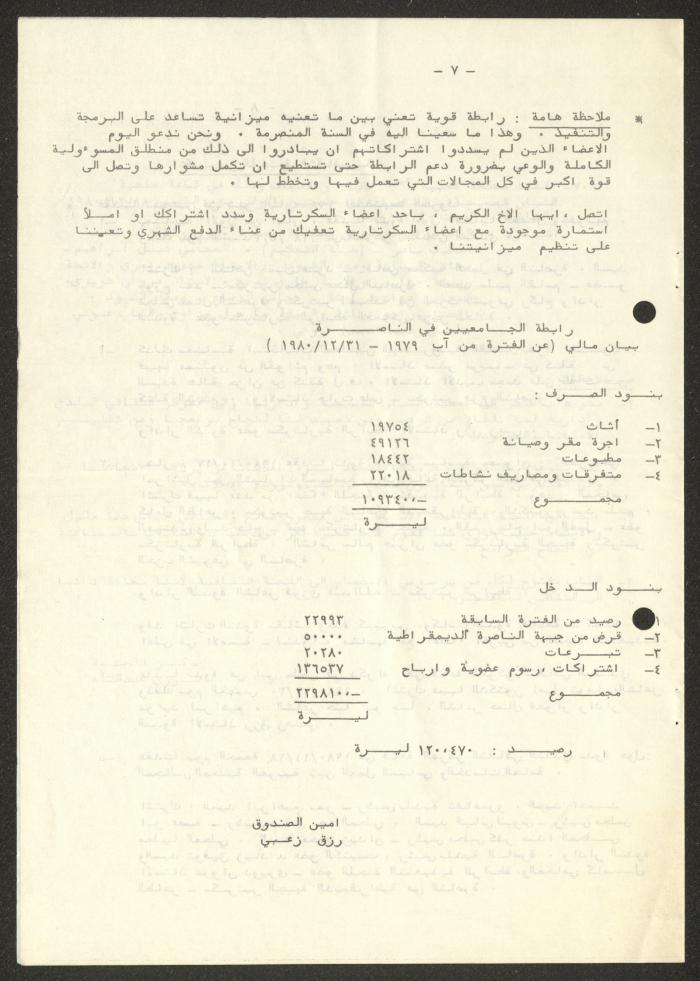 - ٧ -
* ملاحظة هامة : رابطة قوية تعني بين ما تعنيه ميزانية تساعد على البرمجة
والتنفيذ . وهذا ما سعينا اليه في السنة المنصرمة . ونحن ندعو اليوم
الاعضاء الذين لم يسددوا اشتراكاتهم ان يبادروا الى ذلك من منطلق المسوءولية
الكاملة والوعي بضرورة دعم الرابطة حتى تستطيع ان تكمل مشوارها وتصل الى
قوة اكبر في كل المجالات التي تعمل فيها وتخطط لها .
اتصل ،ايها الاخ الكريم ، باحد اعضاء السكرتارية وسدد اشتراكك او امـلأ
استمارة موجودة مع اعضاء السكرتارية تعفيك من عناء الدفع الشهري وتعيننا
على تنظيم ميزانيتنا .
رابطة الجـامعيين في الناصـــــرة
بيان مالي (عن الفترة من آب ١٩٧٩ - ١٩٨٠/١٢/٣١ )
بنـود الصـرف :
١- أثاث ١٩٧٥٤
٢- اجرة مقر وصيانة ٤٩١٢٦
٣- مطبوعات ١٨٤٤٢
٤- متفرقات ومصاريف نشاطات ٢٢٠١٨
مجمــــوع ١٠٩٣٤٠٠,-
ليـــرة
بنـود الـدخل
١- رصيد من الفترة السابقة ٢٢٩٩٣
٢- قرض من جبهة الناصرة الديمقراطية ٥٠٠٠٠
٣- تبـــرعات ٢٠٢٨٠
٤- اشتراكات ،رسوم عضوية وارباح ١٣٦٥٣٧
مجمـــوع ٢٢٩٨١٠٠,-
ليـــرة
رصيـــد : ١٢٠،٤٧٠ ليـــرة
امين الصندوق
رزق زعـبـي